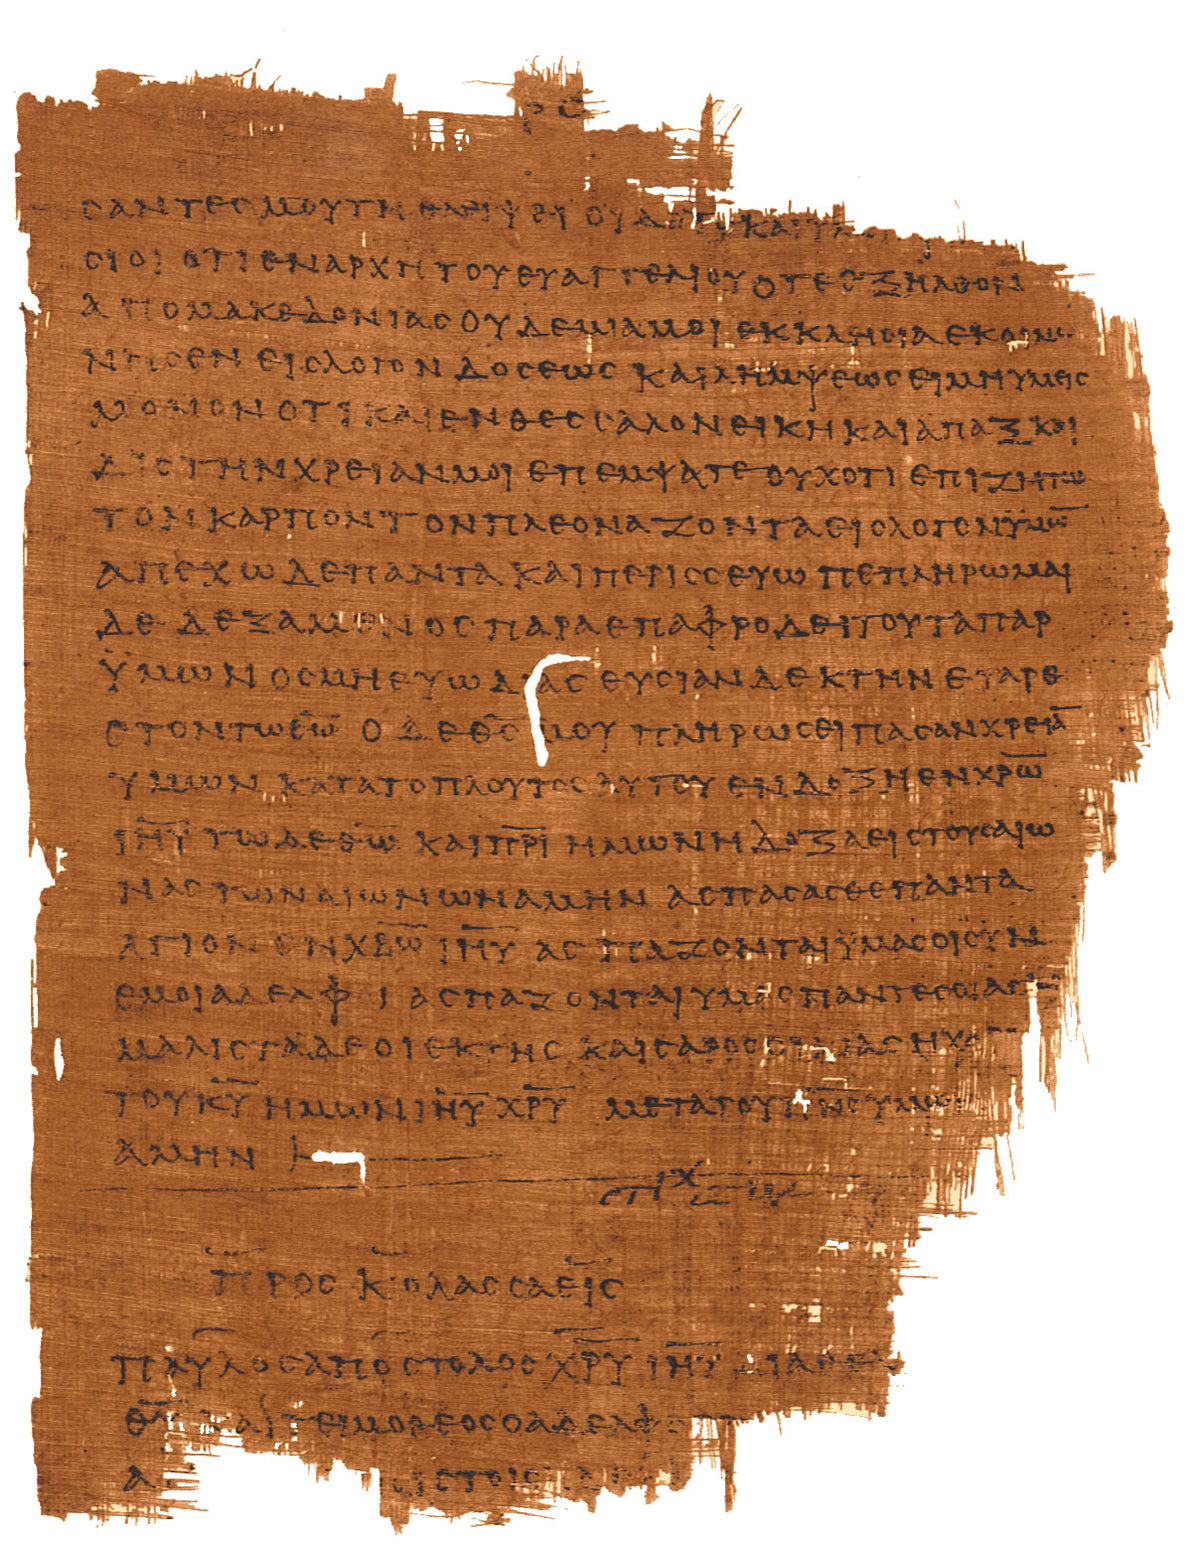 ϹΑΝΤΕϹ ΜΟΥ ΤΗ ΘΛΙΨΕΙ ΟΙΔΑΤΕ ΚΑΙ
ϹΙΟΙ ΟΤΙ ΕΝ ΑΡΧΗ ΤΟΥ ΕΥΑΓΓΕΛΙΟΥ ΟΤΕ ΕΞΗΛΘΟΝ
ΑΠΟ ΜΑΚΕΔΟΝΙΑϹ ΟΥΔΕΜΙΑ ΜΟΙ ΕΚΚΛΗϹΙΑ ΕΚΟΙΝΩ
ΝΗϹΕΝ ΕΙϹ ΛΟΓΟΝ ΔΟϹΕΩϹ ΚΑΙ ΛΗΜΨΕΩϹ ΕΙ ΜΗ ΥΜΕΙϹ
ΜΟΝΟΝ ΟΤΙ ΚΑΙ ΕΝ ΘΕϹϹΑΛΟΝΕΙΚΗ ΚΑΙ ΑΠΑΞ ΚΑΙ
ΔΙϹ ΤΗΝ ΧΡΕΙΑΝ ΜΟΙ ΕΠΕΜΨΑΤΕ ΟΥΧ ΟΤΙ ΕΠΙΖΗΤΩ
ΤΟΝ ΚΑΡΠΟΝ ΤΟΝ ΠΛΕΟΝΑΖΟΝΤΑ ΕΙϹ ΛΟΓΟΝ ΫΜΩ̅
ΑΠΕΧΩ ΔΕ ΠΑΝΤΑ ΚΑΙ ΠΕΡΙϹϹΕΥΩ ΠΕΠΛΗΡΩΜΑΙ
ΔΕ ΔΕΞΑΜΕΝΟϹ ΠΑΡΑ ΕΠΑΦΡΟΔΕΙΤΟΥ ΤΑ ΠΑΡ
ΫΜΩΝ ΟϹΜΗ ΕΥΩΔΙΑϹ ΘΥϹΙΑΝ ΔΕΚΤΗΝ ΕΥΑΡΕ
ϹΤΟΝ ΤΩ Θ̅Ω̅ Ο ΔΕ Θ̅Ϲ̅ ΜΟΥ ΠΛΗΡΩϹΕΙ ΠΑϹΑΝ ΧΡΕΙΑ̅
ΥΜΩΝ ΚΑΤΑ ΤΟ ΠΛΟΥΤΟϹ ΑΥΤΟΥ ΕΝ ΔΟΞΗ ΕΝ Χ̅Ρ̅Ω̅
Ι̅Η̅Υ̅ ΤΩ ΔΕ Θ̅Ω̅ ΚΑΙ Π̅Ρ̅Ι̅ ΗΜΩΝ Η ΔΟΞΑ ΕΙϹ ΤΟΥϹ ΑΙΩ
ΝΑϹ ΤΩΝ ΑΙΩΝΩΝ ΑΜΗΝ ΑϹΠΑϹΑϹΘΕ ΠΑΝΤΑ
ΑΓΙΟΝ ΕΝ Χ̅Ρ̅Ω̅ Ι̅Η̅Υ̅ ΑϹΠΑΖΟΝΤΑΙ ΫΜΑϹ ΟΙ ϹΥΝ
ΕΜΟΙ ΑΔΕΛΦΟΙ ΑϹΠΑΖΟΝΤΑΙ ΥΜΑϹ ΠΑΝΤΕϹ ΟΙ ΑΓΙ
ΜΑΛΙϹΤΑ ΔΕ ΟΙ ΕΚ ΤΗϹ ΚΑΙϹΑΡΟϹ ΟΙΚΙΑϹ Η
ΤΟΥ Κ̅Υ̅ ΗΜΩΝ Ι̅Η̅Υ̅ Χ̅Ρ̅Υ̅ ΜΕΤΑ ΤΟΥ Π̅Ν̅Ϲ̅ ΥΜΩ
ΑΜΗΝ
ΠΡΟϹ ΚΟΛΑϹϹΑΕΙϹ
ΠΑΥΛΟϹ ΑΠΟϹΤΟΛΟϹ Χ̅Ρ̅Υ̅ Ι̅Η̅Υ̅ ΔΙΑ ΘΕ
Θ̅Υ̅ ΚΑΙ ΤΕΙΜΟΘΕΟϹ Ο ΑΔΕΛΦΟ
ΙϹΤΟΙϹ